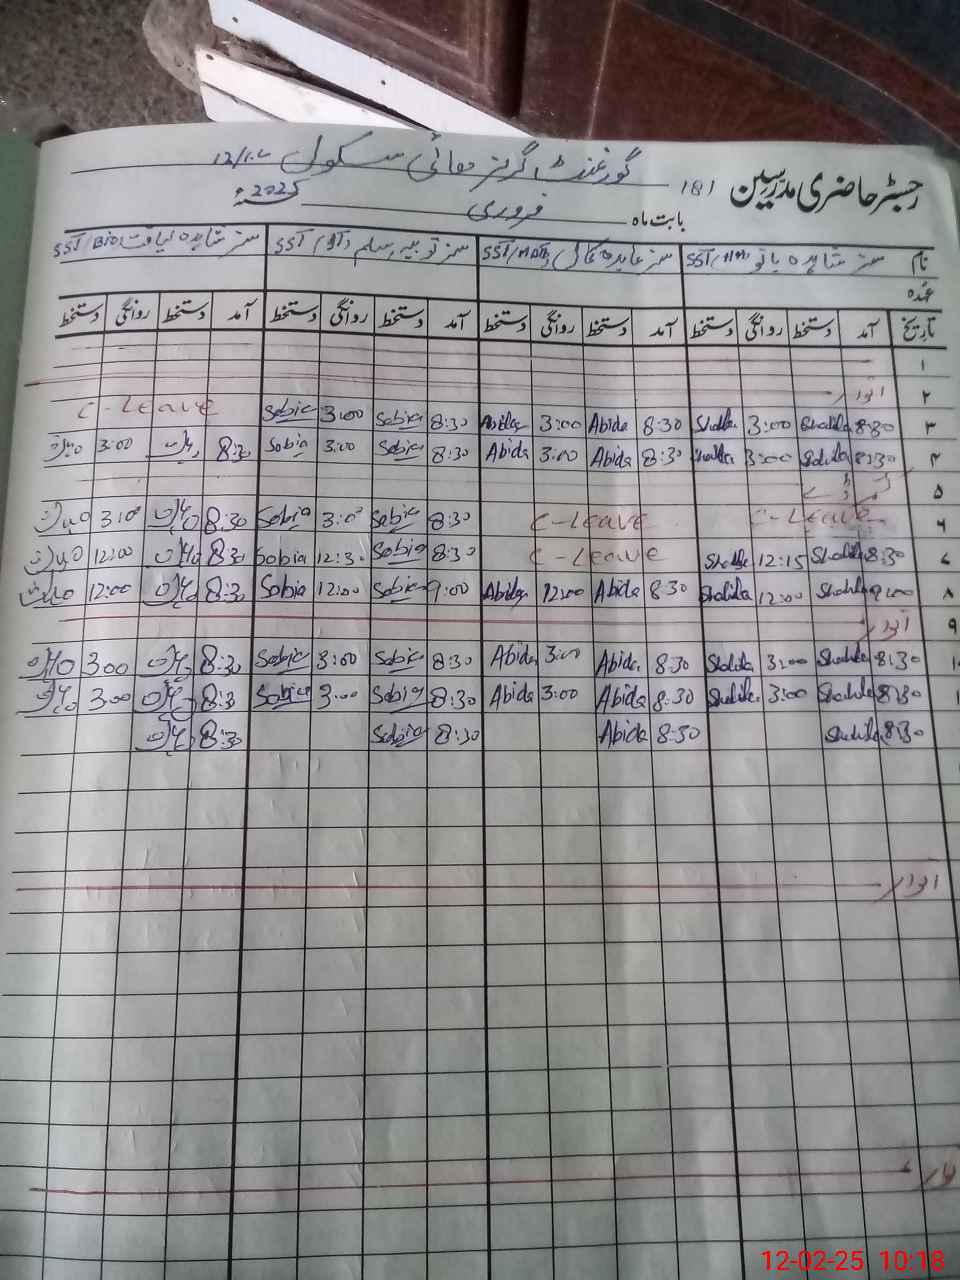 رجسٹر حاضری مدرسین 181 گورنمنٹ گرلز ہائی سکول
بابت ماہ فروری 2025ء
نام مسز شاہدہ بانو SST/ مسز عابدہ SST/ مسز ثوبیہ اسلم SST مسز شاہدہ لیاقت SST/Bio
عہدہ
تاریخ آمد دستخط روانگی دستخط آمد دستخط روانگی دستخط آمد دستخط روانگی دستخط آمد دستخط روانگی دستخط
۱
۲ اتوار
۳ 8:30 Shahida 3:00 Shahida 8:30 Abida 3:00 Abida 8:30 Sobia 3:00 Sobia C-Leave
۴ 8:30 Shahida 3:00 Shahida 8:30 Abida 3:00 Abida 8:30 Sobia 3:00 Sobia 8:30 3:00
۵
۶ C-Leave C-Leave 8:30 Sobia 3:00 Sobia 8:30 3:00
۷ 8:30 Shahida 12:15 Shahida C-Leave 8:30 Sobia 12:30 Sobia 8:30 12:00
۸ 9:00 Shahida 12:00 Shahida 8:30 Abida 12:00 Abida 9:00 Sobia 12:00 Sobia 8:30 12:00
۹ اتوار
8:30 Shahida 3:00 Shahida 8:30 Abida 3:00 Abida 8:30 Sobia 3:00 Sobia 8:30 3:00
8:30 Shahida 3:00 Shahida 8:30 Abida 3:00 Abida 8:30 Sobia 3:00 Sobia 8:30 3:00
8:30 Shahida 8:30 Abida 8:30 Sobia 8:30
اتوار
12-02-25 10:18